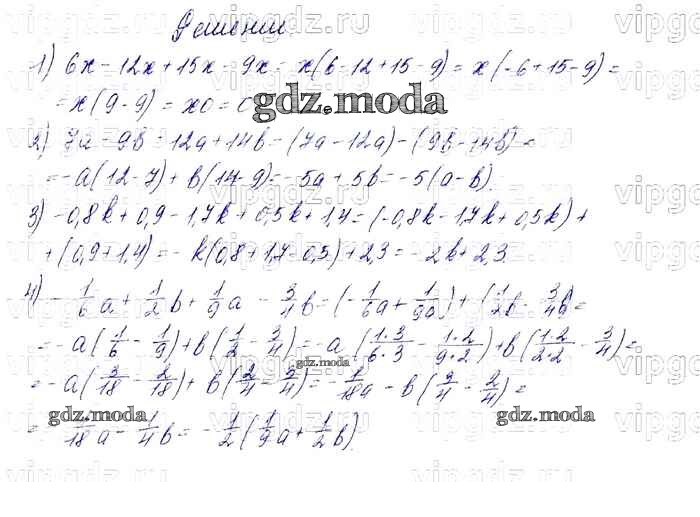 Решение
1) 6x - 12x + 15x - 9x = x(6 - 12 + 15 - 9) = x(-6 + 15 - 9) =
= x(9 - 9) = x0 = 0
gdz.moda
2) 7a - 9b - 12a + 14b = (7a - 12a) - (9b - 14b) =
= -a(12 - 7) + b(14 - 9) = -5a + 5b = -5(a - b).
3) -0,8k + 0,9 - 1,7k + 0,5k + 1,4 = (-0,8k - 1,7k + 0,5k) +
+ (0,9 + 1,4) = -k(0,8 + 1,7 - 0,5) + 2,3 = -2k + 2,3
4) -1/6a + 1/2b + 1/9a - 3/4b = (-1/6a + 1/9a) + (1/2b - 3/4b) =
= -a(1/6 - 1/9) + b(1/2 - 3/4) = -a(1·3/6·3 - 1·2/9·2) + b(1·2/2·2 - 3/4) =
gdz.moda
= -a(3/18 - 2/18) + b(2/4 - 3/4) = -1/18a - b(3/4 - 2/4) =
gdz.moda
gdz.moda
= -1/18a - 1/4b = -1/2(1/9a + 1/2b).
vipgdz.ru